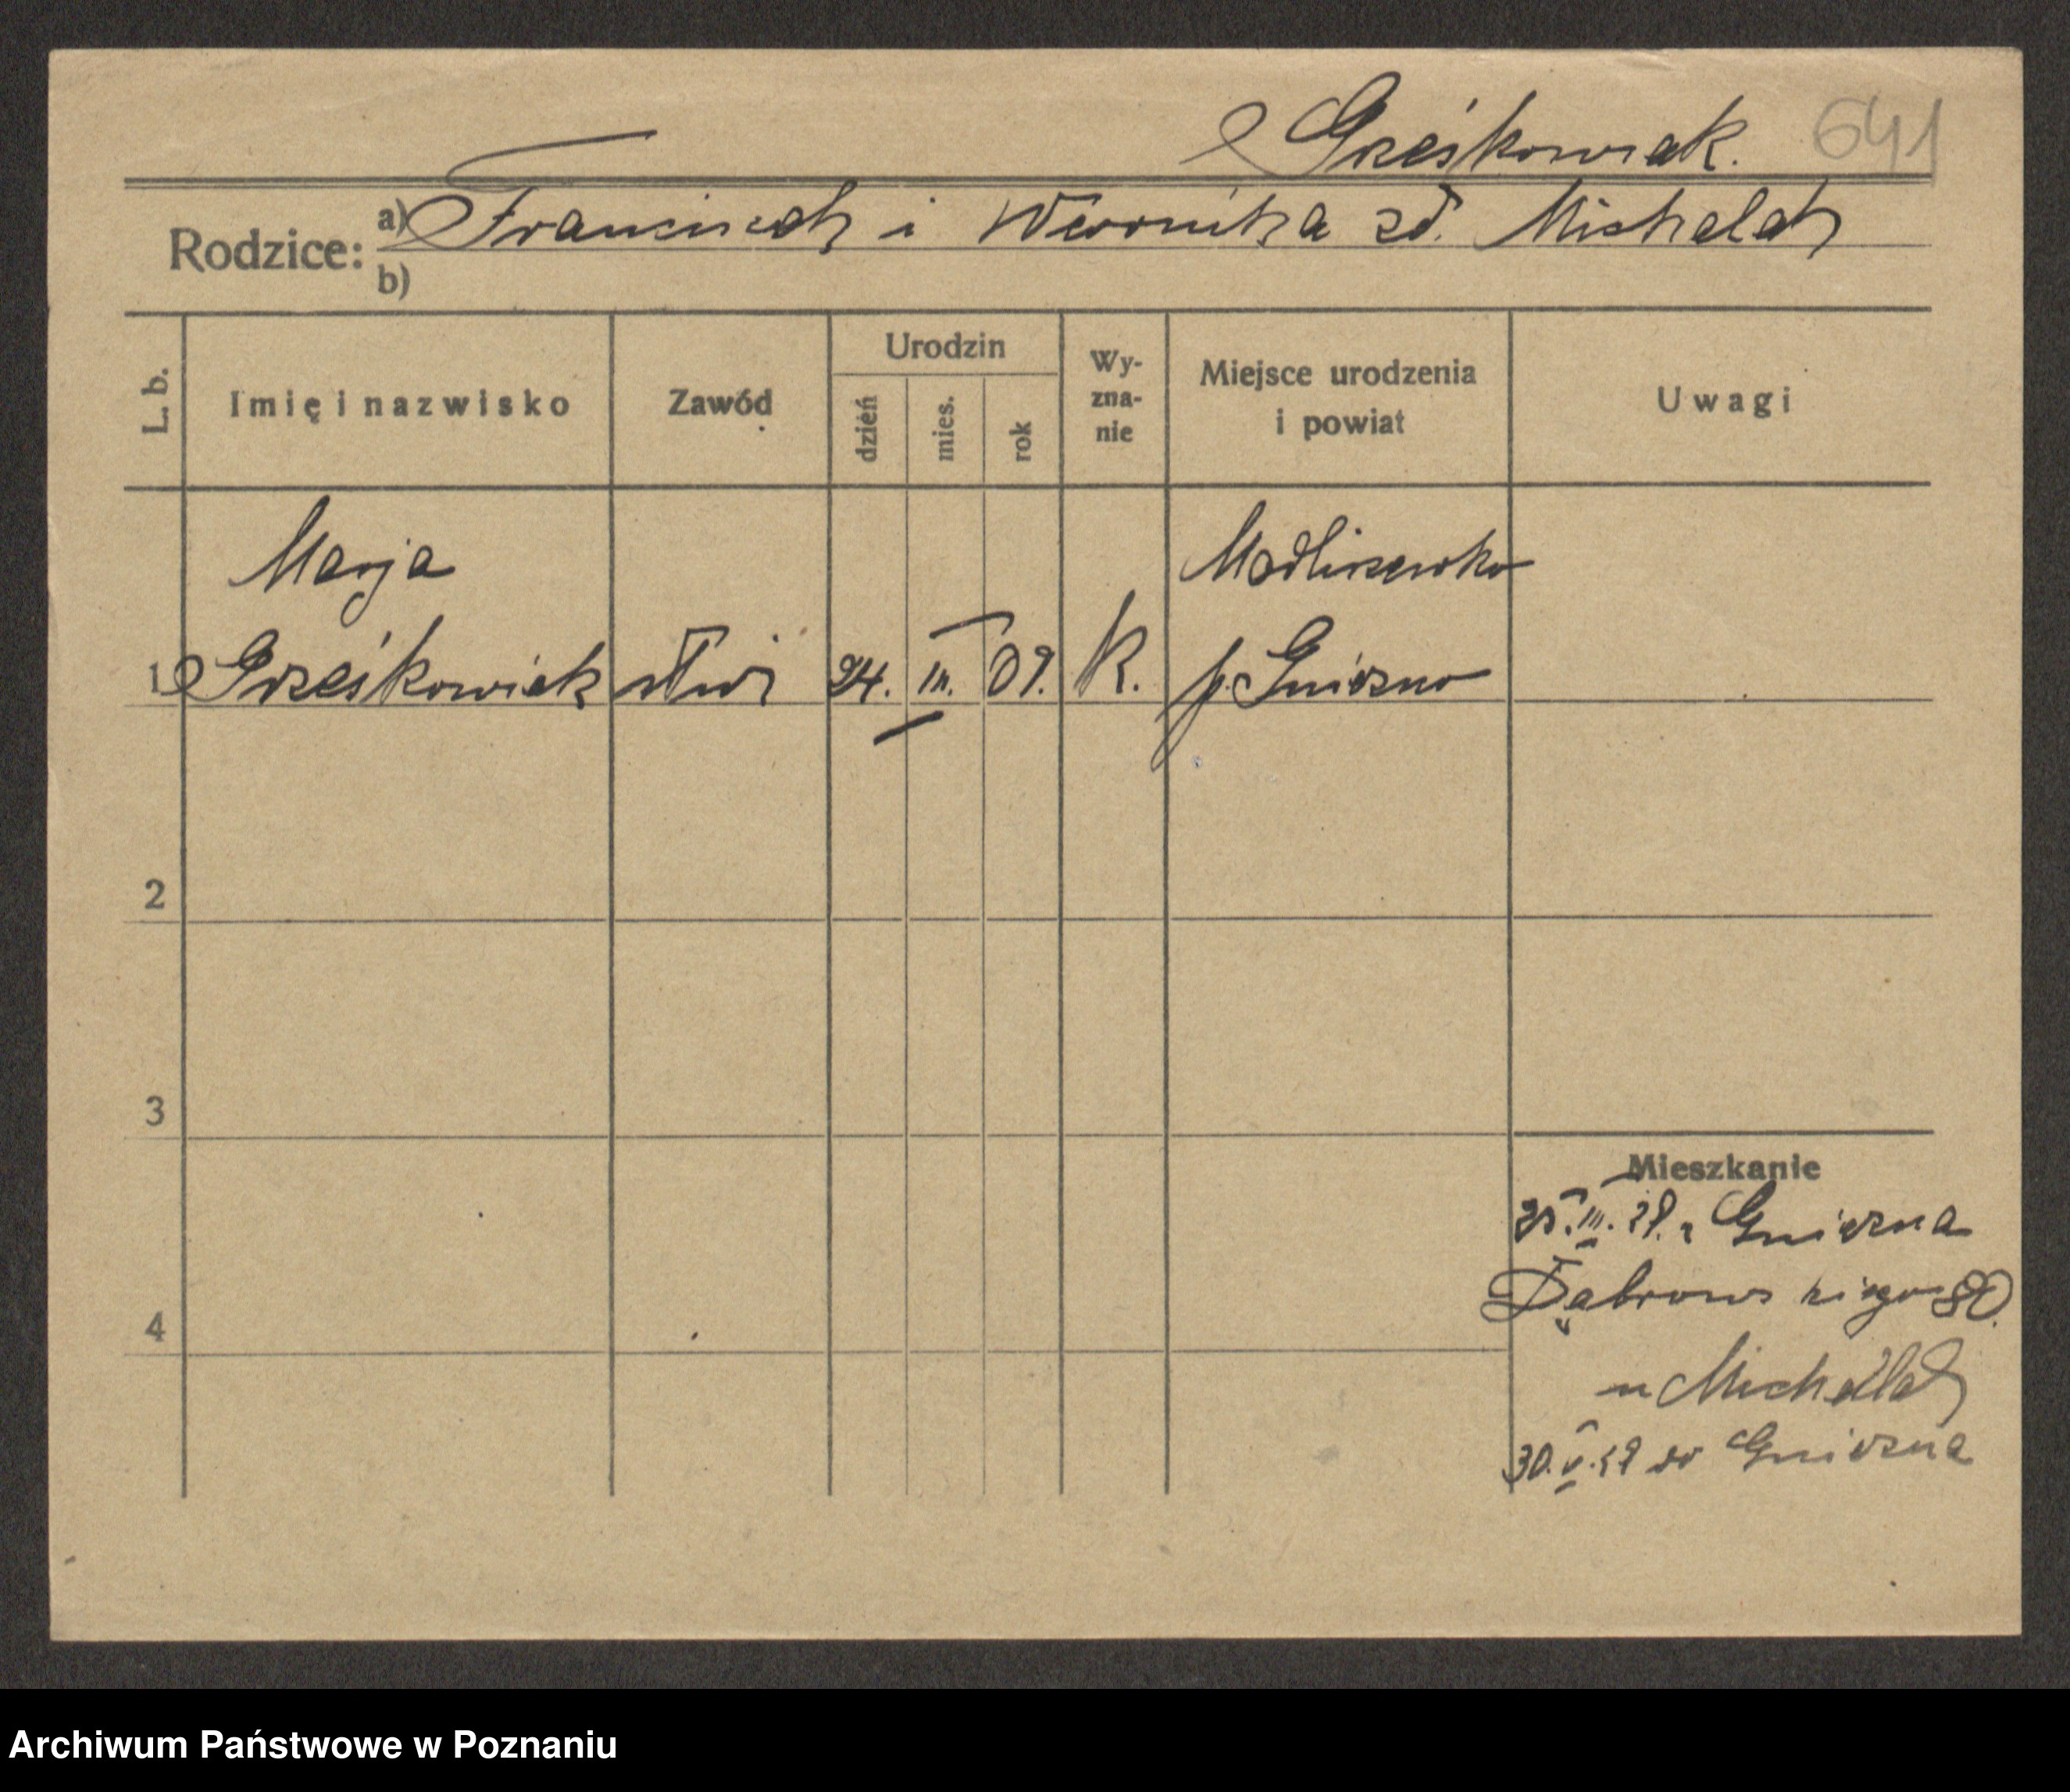 Grześkowiak. 641
Rodzice: a) Franciszek i Weronika zd. Michalak
b)
L. b. Imię i nazwisko Zawód Urodzin dzień mies. rok Wy-zna-nie Miejsce urodzenia i powiat Uwagi
Marja Modliszewko
1 Grześkowiak 24. III. 09. K. p. Gniezno
2
3
Mieszkanie
25. III. 29. z Gniezna
4 Dąbrowskiego 80.
u Michalak
30. V. 29 do Gniezna
Archiwum Państwowe w Poznaniu